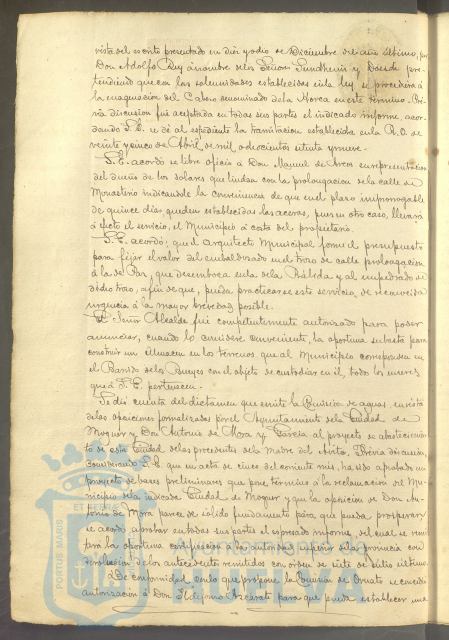 vista del escrito presentado en diez y ocho de Diciembre del año último, por
Don Adolfo Rey á nombre de los Señores Sundheim y Doetsch pre-
tendiendo que con las solemnidades establecidas en la ley se procediera á
la enagenacion del Cabezo denominado de la Horca en este término. Pré-
via discusion fué aceptado en todas sus partes el indicado informe, acor-
dando S.E. se dé al espediente la tramitacion establecida en la R.O. de
veinte y cinco de Abril de mil ochocientos setenta y nueve.
S.E. acordó se libre oficio á Don Manuel de Arcos en representacion
del dueño de los solares que lindan con la prolongacion de la calle de
Monasterio indicandole la conveniencia de que en el plazo improrogable
de quince dias queden establecidas las aceras, pues en otro caso, llevará
á efecto el servicio, el Municipio á costa del propietario.
S.E. acordó, que el Arquitecto Municipal forme el presupuesto
para fijar el valor del embaldosado en el trozo de calle prolongacion
á la de Boza, que desemboca en la de la Rábida y al empedrado de
dicho trozo, afin de que, pueda practicarse este servicio de reconocida
urgencia á la mayor brevedad posible.
El Señor Alcalde fué competentemente autorizado para poder
anunciar, cuando lo considere conveniente, la oportuna subasta para
construir un almacen en los terrenos que al Municipio corresponden en
el Barrido de los Bueyes con el objeto de custodiar en él, todos los enseres
que á S.E. pertenecen.
Se dió cuenta del dictamen que emite la Comision de aguas en vista
de las oposiciones formalizadas por el Ayuntamiento de la Ciudad de
Moguer y Don Antonio de Mora y Garcia al proyecto de abastecimien-
to de esta Ciudad de las procedentes de la Madre del Avito. Prévia discusion,
considerando S.E. que en acta de cinco del corriente mes, ha sido aprobado un
proyecto de bases preliminares que pone término á la reclamacion del Mu-
nicipio de la indicada Ciudad de Moguer y que la oposicion de Don An-
tonio de Mora parece de sólido fundamento para que pueda prosperar,
se acordó aprobar en todas sus partes el espresado informe, del cual se remi-
tirá la oportuna certificacion á la autoridad superior de la provincia con
devolucion de los antecedentes remitidos con orden de siete de Julio último.
De conformidad con lo que propone la Comision de Ornato se concedió
autorizacion á Don Ildefonso Azcarate para que pueda establecer una
PORTUS MARIS
ET TERRAE
Ayuntamiento de